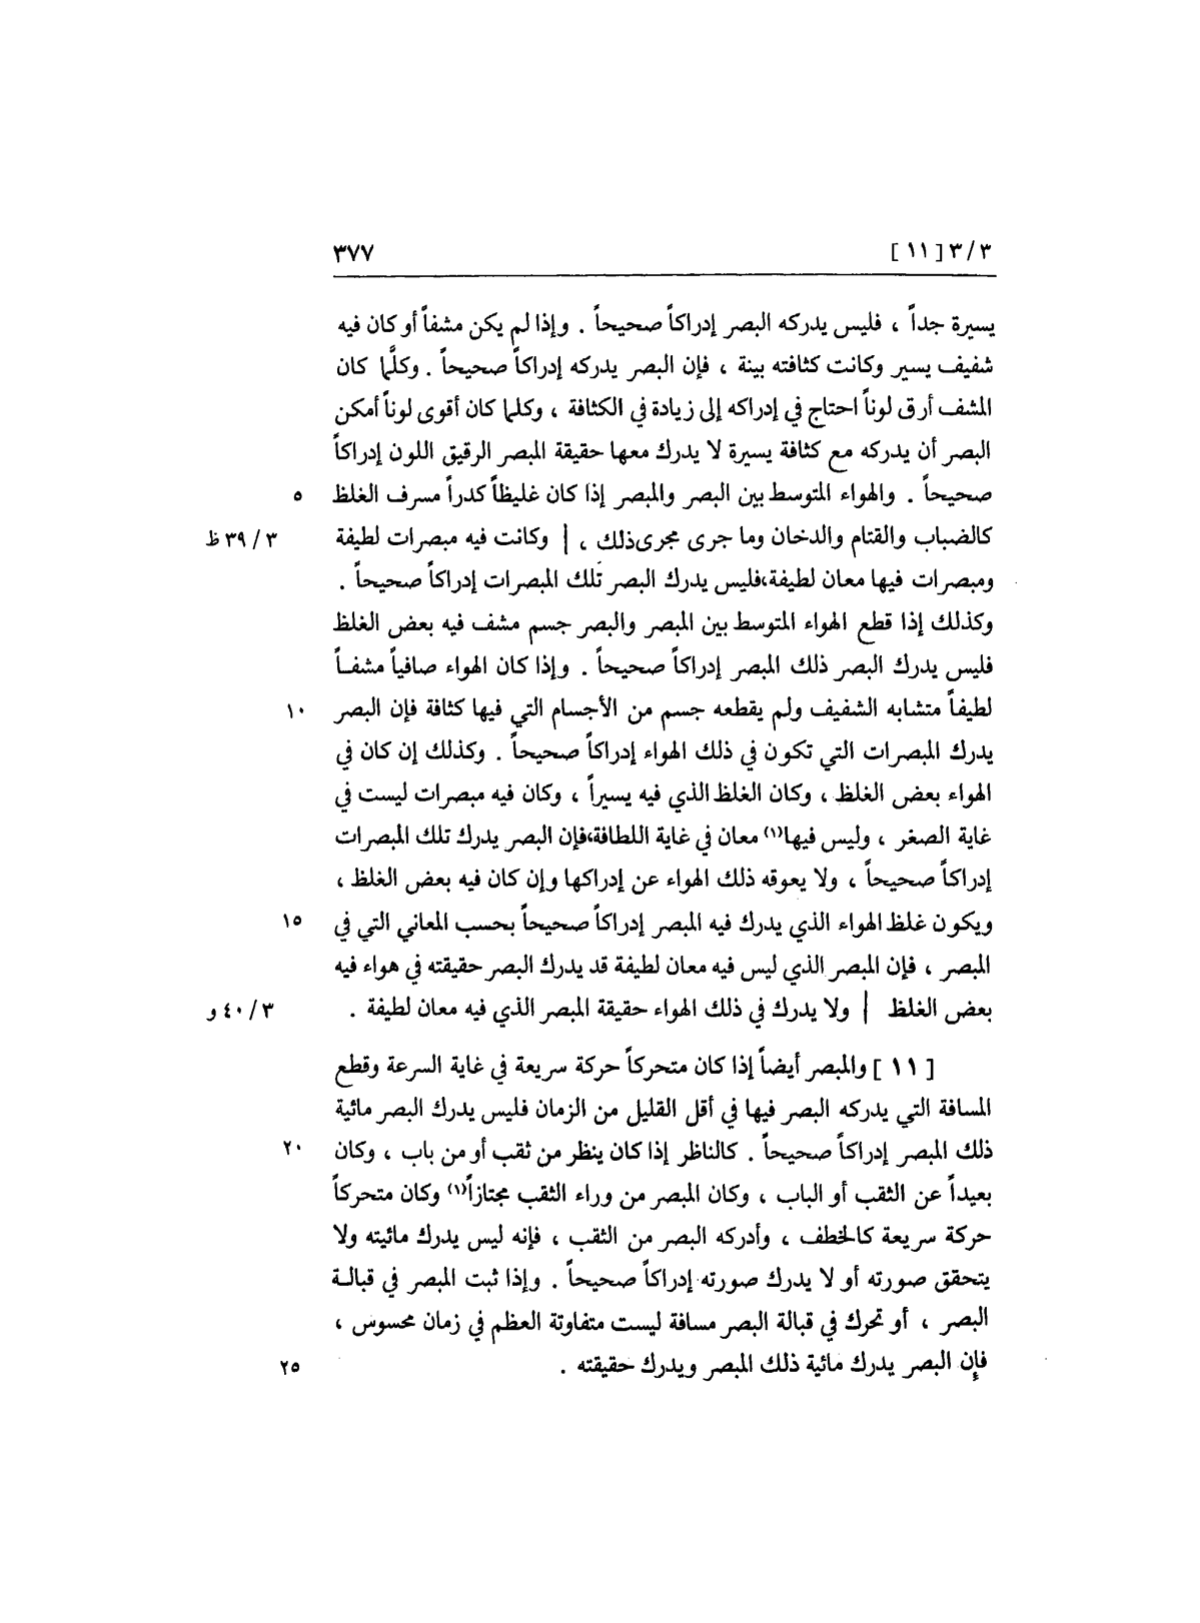 ٣/٣ [ ١١ ] ٣٧٧
يسيرة جداً ، فليس يدركه البصر إدراكاً صحيحاً . وإذا لم يكن مشفاً أو كان فيه
شفيف يسير وكانت كثافته بينة ، فإن البصر يدركه إدراكاً صحيحاً . وكلَّما كان
المشف أرق لوناً احتاج في إدراكه إلى زيادة في الكثافة ، وكلما كان أقوى لوناً أمكن
البصر أن يدركه مع كثافة يسيرة لا يدرك معها حقيقة المبصر الرقيق اللون إدراكاً
صحيحاً . والهواء المتوسط بين البصر والمبصر إذا كان غليظاً كدراً مسرف الغلظ ٥
كالضباب والقتام والدخان وما جرى مجرى ذلك ، | وكانت فيه مبصرات لطيفة ٣ / ٣٩ ظ
ومبصرات فيها معان لطيفة،فليس يدرك البصر تلك المبصرات إدراكاً صحيحاً .
وكذلك إذا قطع الهواء المتوسط بين المبصر والبصر جسم مشف فيه بعض الغلظ
فليس يدرك البصر ذلك المبصر إدراكاً صحيحاً . وإذا كان الهواء صافياً مشفـاً
لطيفاً متشابه الشفيف ولم يقطعه جسم من الأجسام التي فيها كثافة فإن البصر ١٠
يدرك المبصرات التي تكون في ذلك الهواء إدراكاً صحيحاً . وكذلك إن كان في
الهواء بعض الغلظ ، وكان الغلظ الذي فيه يسيراً ، وكان فيه مبصرات ليست في
غاية الصغر ، وليس فيها(١) معان في غاية اللطافة،فإن البصر يدرك تلك المبصرات
إدراكاً صحيحاً ، ولا يعوقه ذلك الهواء عن إدراكها وإن كان فيه بعض الغلظ ،
ويكون غلظ الهواء الذي يدرك فيه المبصر إدراكاً صحيحاً بحسب المعاني التي في ١٥
المبصر ، فإن المبصر الذي ليس فيه معان لطيفة قد يدرك البصر حقيقته في هواء فيه
بعض الغلظ | ولا يدرك في ذلك الهواء حقيقة المبصر الذي فيه معان لطيفة . ٣ / ٤٠ و
[ ١١ ] والمبصر أيضاً إذا كان متحركاً حركة سريعة في غاية السرعة وقطع
المسافة التي يدركه البصر فيها في أقل القليل من الزمان فليس يدرك البصر مائية
ذلك المبصر إدراكاً صحيحاً . كالناظر إذا كان ينظر من ثقب أو من باب ، وكان ٢٠
بعيداً عن الثقب أو الباب ، وكان المبصر من وراء الثقب مجتازاً(١) وكان متحركاً
حركة سريعة كالخطف ، وأدركه البصر من الثقب ، فإنه ليس يدرك مائيته ولا
يتحقق صورته أو لا يدرك صورته إدراكاً صحيحاً . وإذا ثبت المبصر في قبالـة
البصر ، أو تحرك في قبالة البصر مسافة ليست متفاوتة العظم في زمان محسوس ،
فإن البصر يدرك مائية ذلك المبصر ويدرك حقيقته . ٢٥